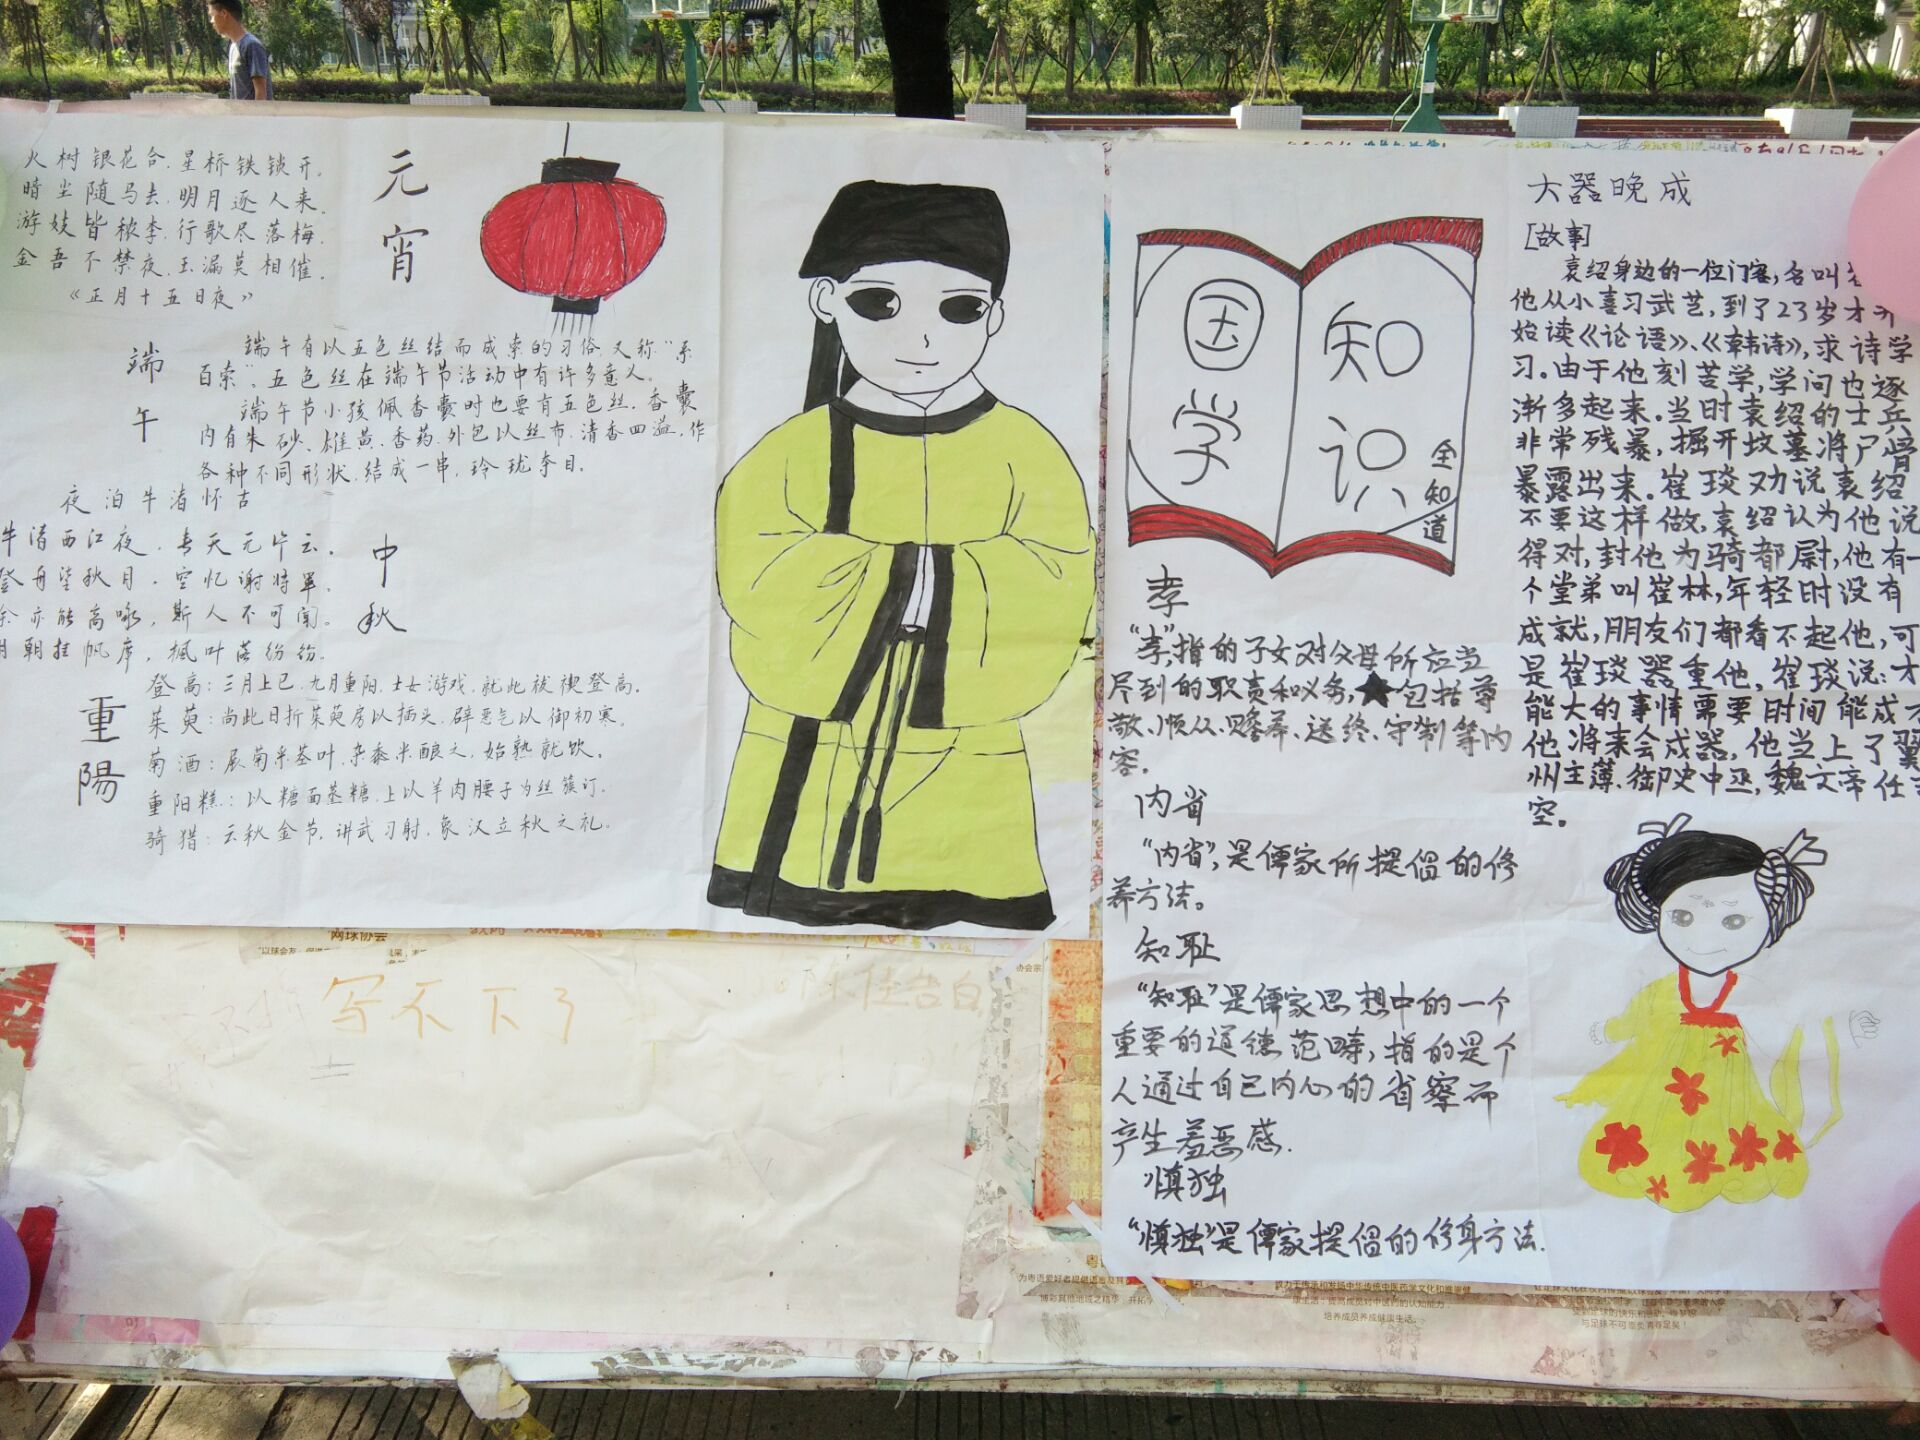 火树银花合.星桥铁锁开.
暗尘随马去.明月逐人来.
游妓皆秾李.行歌尽落梅.
金吾不禁夜.玉漏莫相催.
《正月十五日夜》
元宵
端午有以五色丝结而成索的习俗,又称"系
百索".五色丝在端午节活动中有许多意义.
端午节小孩佩香囊时也要有五色丝.香囊
内有朱砂、雄黄、香药.外包以丝布.清香四溢.作
各种不同形状.结成一串.玲珑夺目.
端午
夜泊牛渚怀古
牛渚西江夜.青天无片云.
登舟望秋月.空忆谢将军.
余亦能高咏,斯人不可闻.
明朝挂帆席,枫叶落纷纷.
中秋
登高:三月上巳.九月重阳.士女游戏.就此祓禊登高.
茱萸:尚此日折茱萸房以插头.辟恶气以御初寒.
菊酒:展菊采茎叶.杂黍米酿之.始熟就饮.
重阳糕:以糖面蒸糖.上以羊肉腰子为丝簇订.
骑猎:云秋金节.讲武习射.象汉立秋之礼.
重陽
国学
知识
全知道
孝
"孝",指的子女对父母所应当
尽到的职责和义务,★包括尊
敬、顺从、赡养、送终、守制等内
容.
内省
"内省",是儒家所提倡的修
养方法。
知耻
"知耻"是儒家思想中的一个
重要的道德范畴,指的是个
人通过自己内心的省察而
产生羞恶感.
慎独
"慎独"是儒家提倡的修身方法.
大器晚成
[故事]
袁绍身边的一位门客,名叫
他从小喜习武艺,到了23岁才开
始读《论语》、《韩诗》,求诗学
习.由于他刻苦学,学问也逐
渐多起来.当时袁绍的士兵
非常残暴,掘开坟墓将尸骨
暴露出来.崔琰劝说袁绍
不要这样做,袁绍认为他说
得对,封他为骑都尉,他有一
个堂弟叫崔林,年轻时没有
成就,朋友们都看不起他,可
是崔琰器重他,崔琰说:才
能大的事情需要时间能成才
他将来会成器,他当上了冀
州主薄、御史中丞,魏文帝任司
空。
网球协会
写不下了
陈佳告白
培养成员养成健康生活。
与足球不可辜负青春足矣!